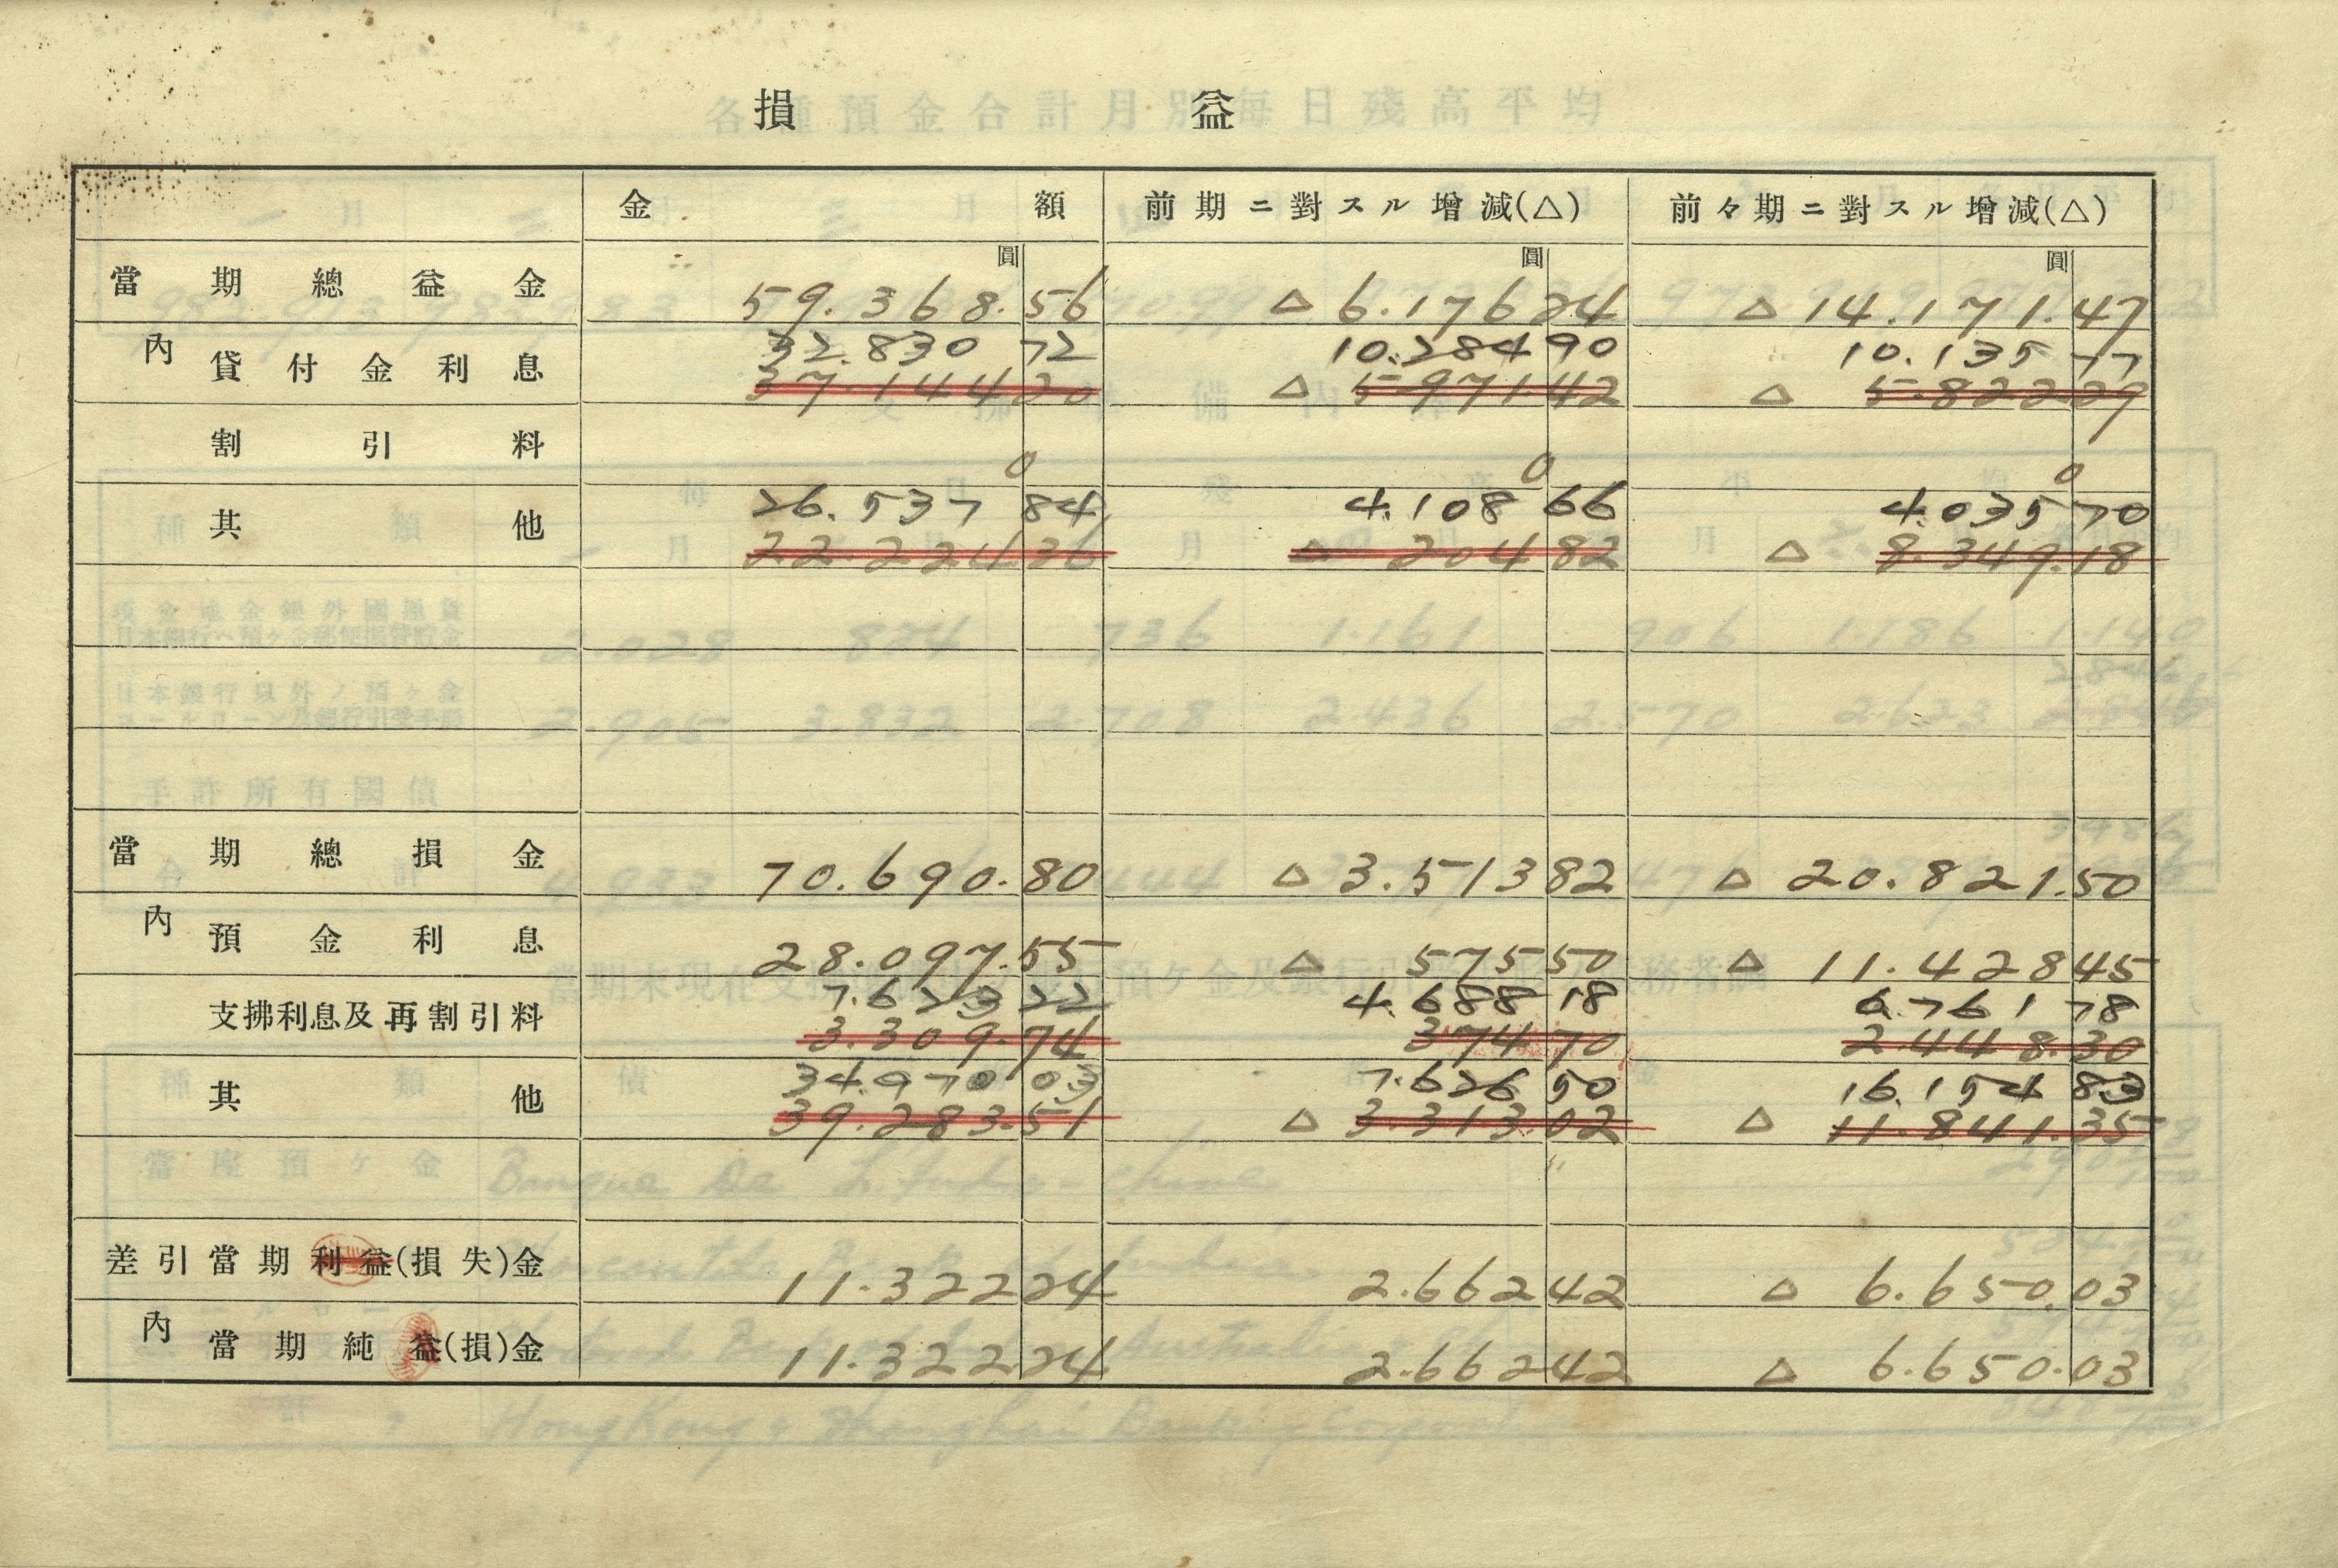 損 益
金 額 前期ニ對スル增減(△) 前々期ニ對スル增減(△)
圓 圓 圓
當期總益金 59.368.56 △ 6.176 24 △ 14.171.47
32.830 72 10.284 90 10.135 77
內 貸付金利息 37.144 20 △ 5.971.42 △ 5.822 29
割引料 0 0 0
26.537 84 4.108 66 4.035 70
其他 22.224 36 △ 204 82 △ 8.349.18
當期總損金 70.690.80 △ 3.513 82 △ 20.821.50
內 預金利息 28.097.55 △ 575 50 △ 11.428 45
7.623 22 4.688 18 6.761 78
支拂利息及再割引料 3.309.74 374 70 2.448.30
34.970 03 7.626 50 16.154 83
其他 39.283.51 △ 3.313.02 △ 11.841.35
差引當期利益(損失)金 11.322 24 2.662 42 △ 6.650.03
內 當期純益(損)金 11.322 24 2.662 42 △ 6.650.03